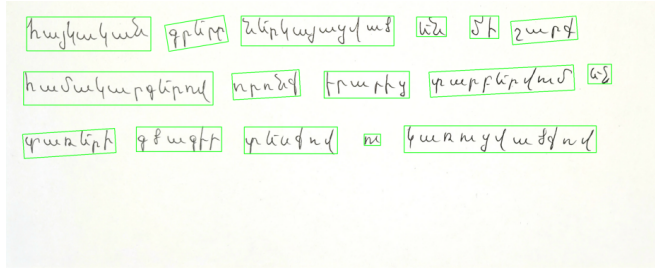 հայկական գրերը ներկայացված են մի շարք
համակարգերով որոնք իրարից տարբերվում են
տառերի գծագրի տեսքով ու կառուցվածքով